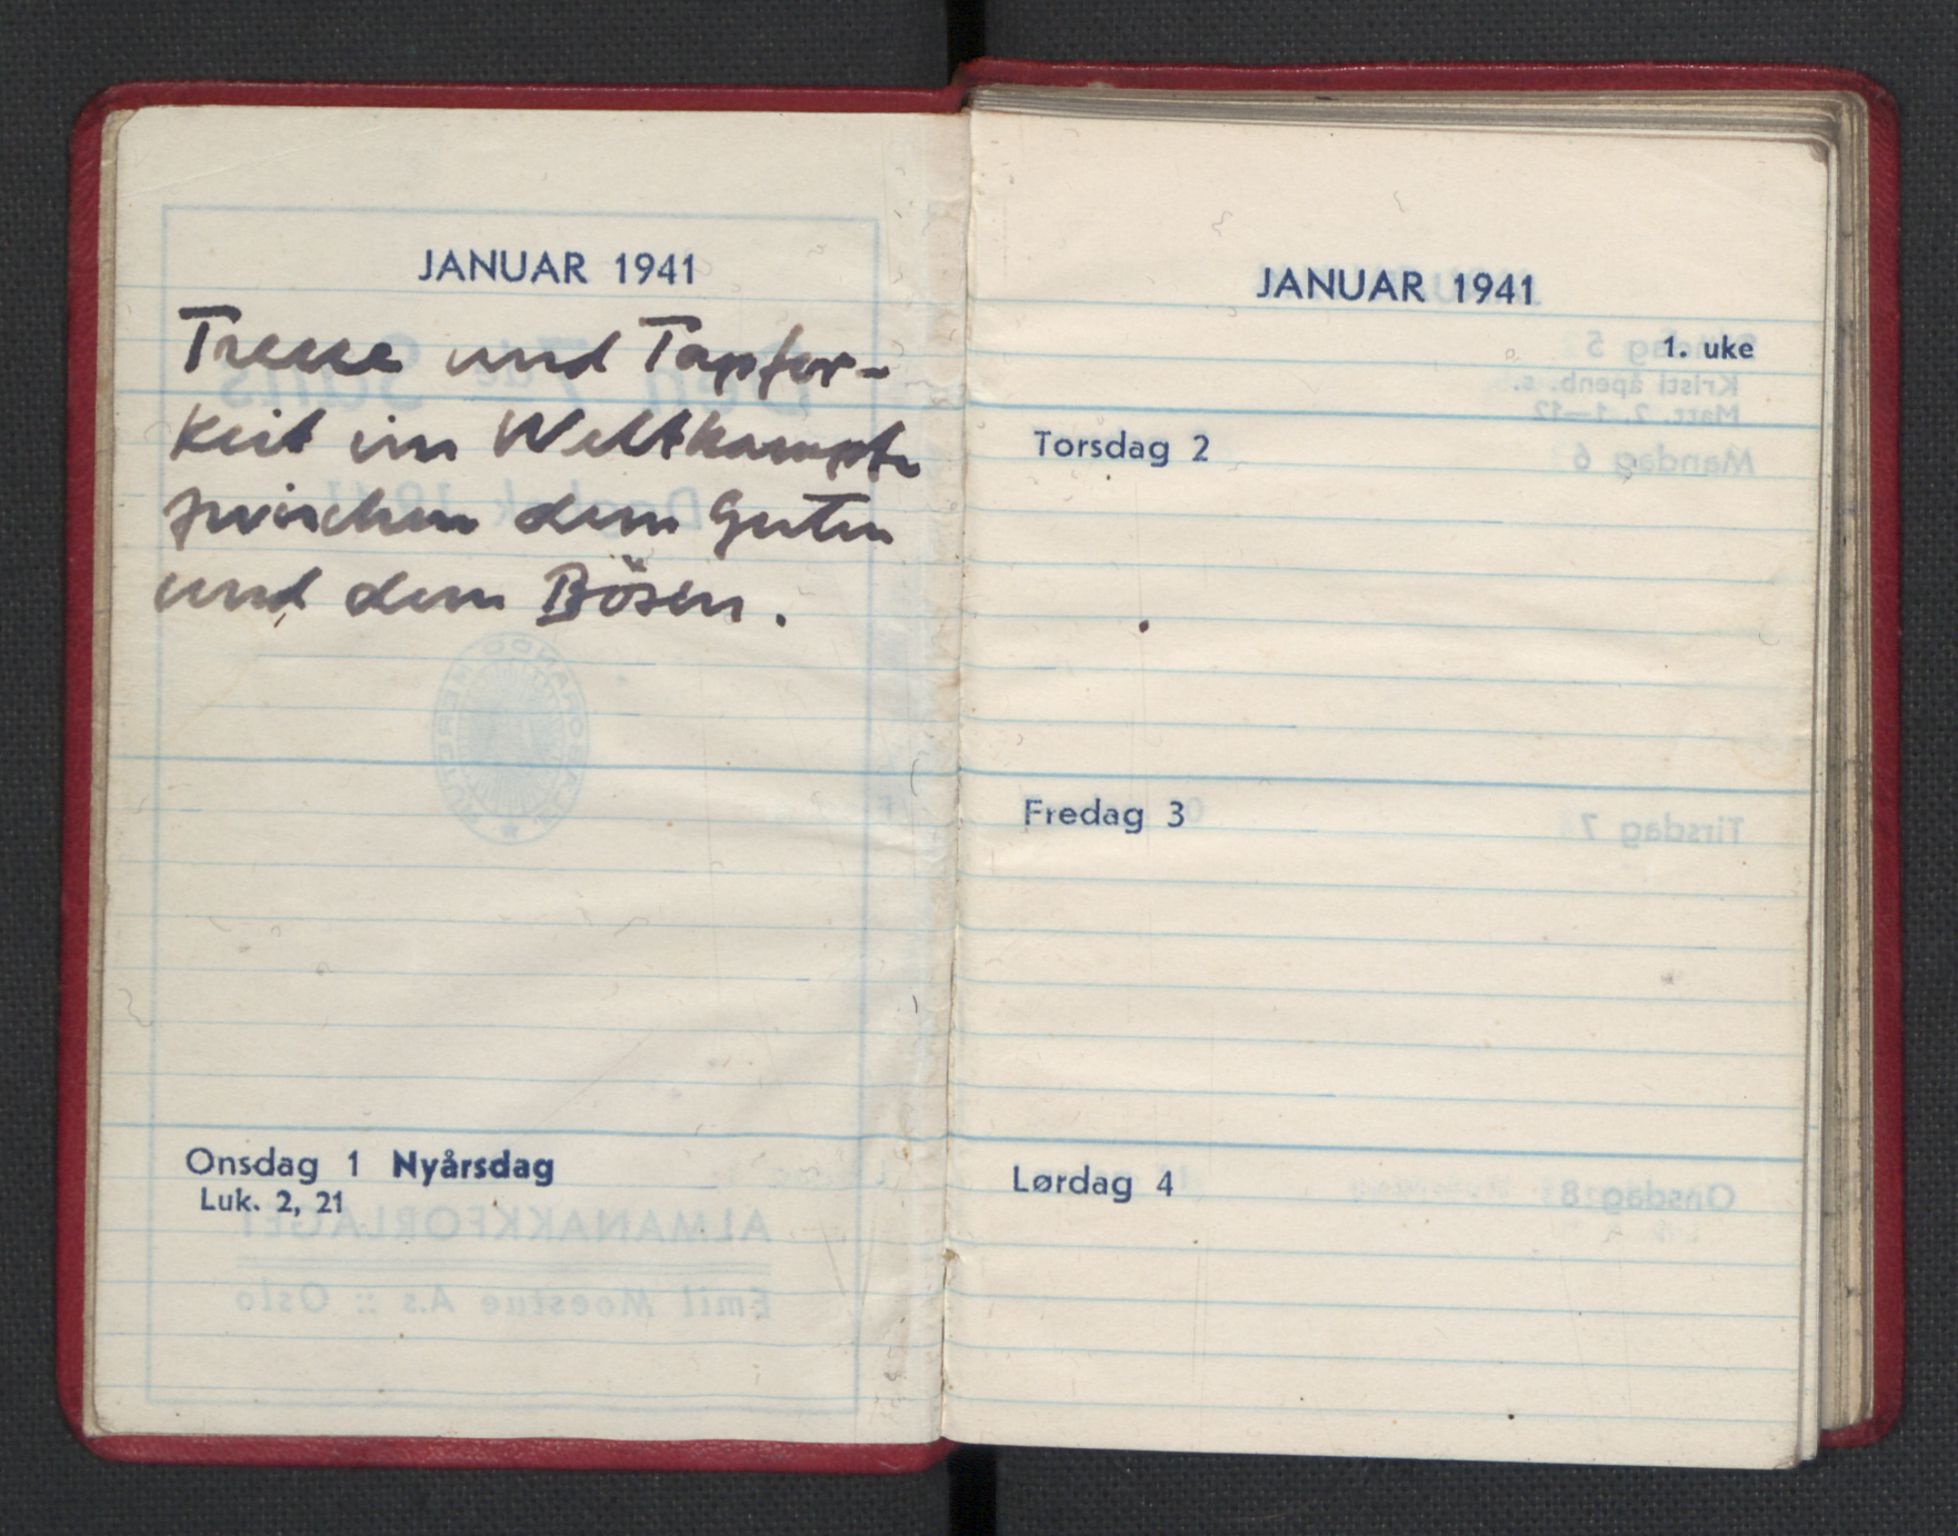 JANUAR 1941
Treue und Tapfer-
keit im Weltkampfe
zwischen dem Guten
und dem Bösen.
Onsdag 1 Nyårsdag
Luk. 2, 21
JANUAR 1941
1. uke
Torsdag 2
Fredag 3
Lørdag 4